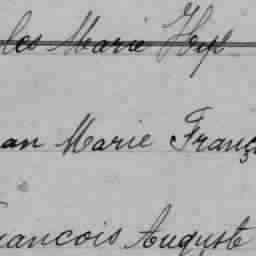 les Marie
an Marie Franç
rancois Auguste